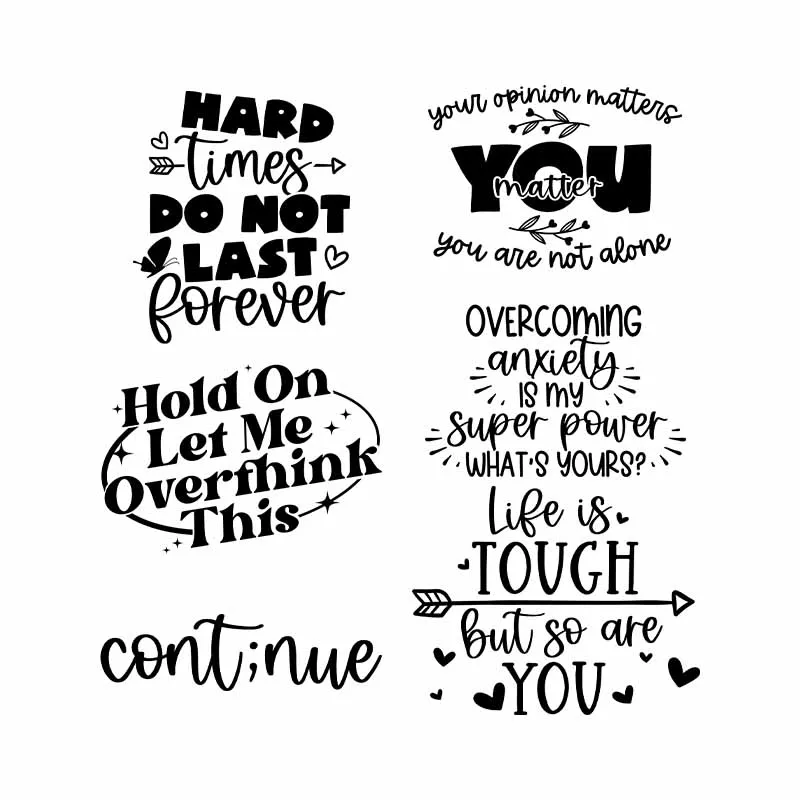 HARD
times
DO NOT
LAST
forever
your opinion matters
YOU
matter
you are not alone
Hold On
Let Me
Overthink
This
OVERCOMING
anxiety
IS MY
super power
WHAT'S YOURS?
cont;nue
Life is
TOUGH
but so are
YOU